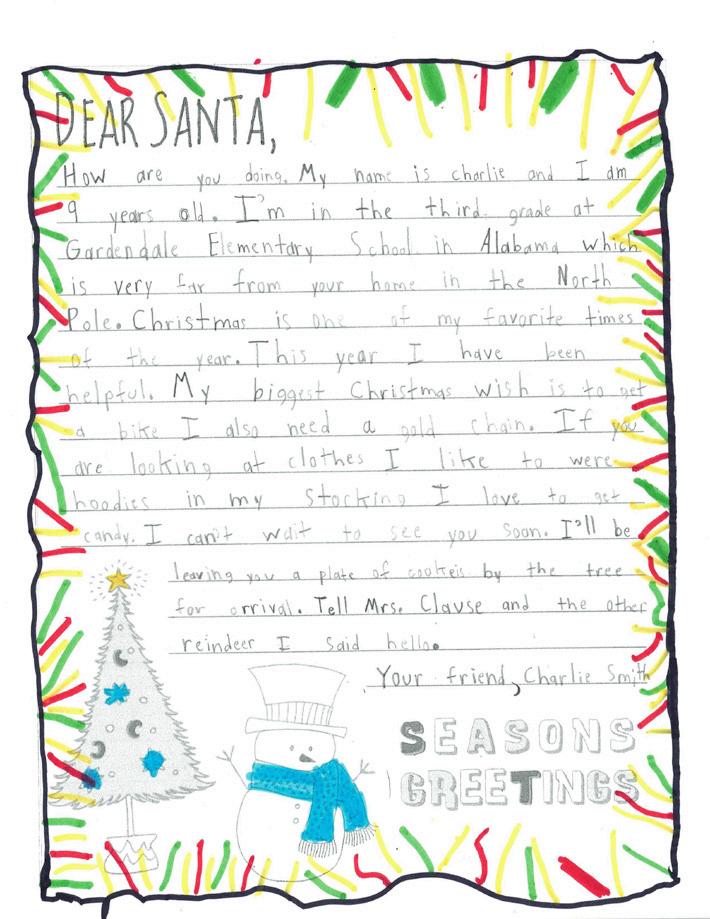 DEAR SANTA,
How are you doing. My name is charlie and I am
9 years old. I'm in the third grade at
Gardendale Elementary School in Alabama which
is very far from your home in the North
Pole. Christmas is one of my favorite times
of the year. This year I have been
helpful. My biggest Christmas wish is to get
a bike I also need a gold chain. If you
are looking at clothes I like to were
hoodies in my stocking I love to get
candy. I can't wait to see you soon. I'll be
leaving you a plate of cookeis by the tree
for orrival. Tell Mrs. Clause and the other
reindeer I said hello.
Your friend, Charlie Smith
SEASONS
GREETINGS